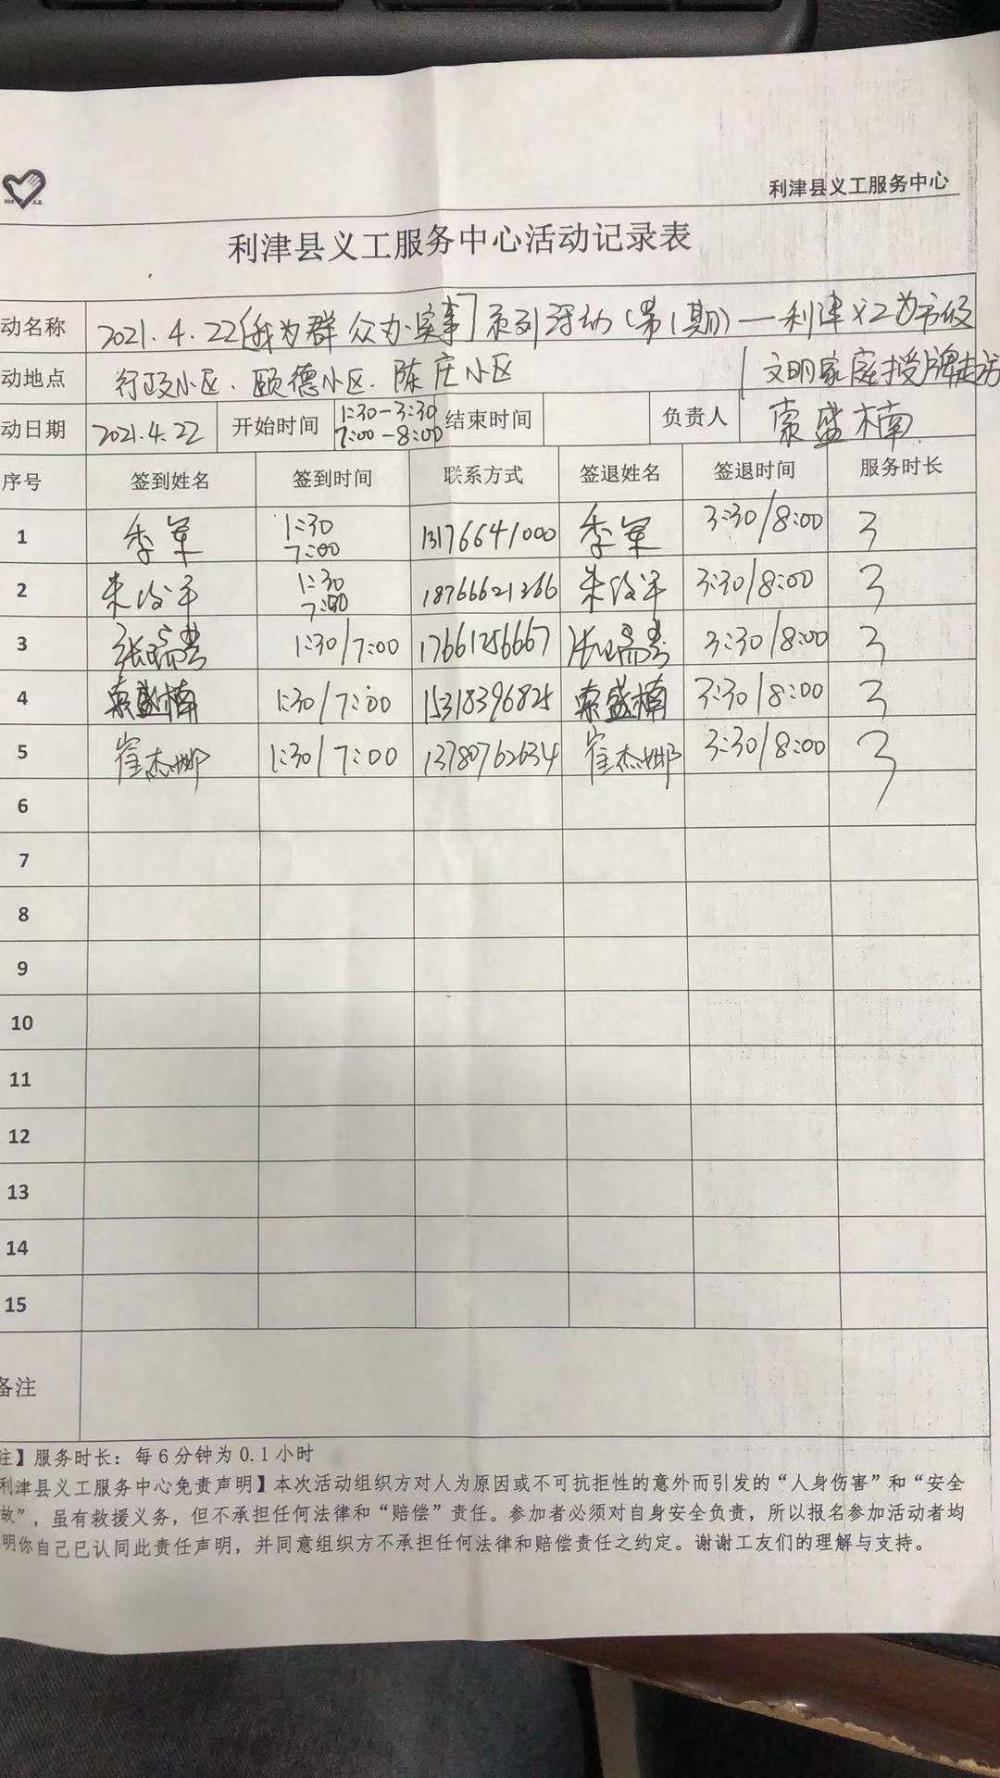 利津县义工服务中心
利津县义工服务中心活动记录表
动名称 2021.4.22[我为群众办实事]系列活动(第1期)—利津义工为市级
文明家庭授牌走访
动地点 行政小区、颐德小区、陈庄小区
动日期 2021.4.22 开始时间 1:30-3:30 7:00-8:00 结束时间 负责人 盛楠
序号 签到姓名 签到时间 联系方式 签退姓名 签退时间 服务时长
1 军 1:30 7:00 13176641000 军 3:30/8:00 3
2 1:30 7:00 18766621266 3:30/8:00 3
3 张瑞 1:30/7:00 17661256667 张瑞 3:30/8:00 3
4 盛楠 1:30/7:00 15318396825 盛楠 3:30/8:00 3
5 崔杰娜 1:30/7:00 13780762634 崔杰娜 3:30/8:00 3
6
7
8
9
10
11
12
13
14
15
备注
注】服务时长：每6分钟为0.1小时
利津县义工服务中心免责声明】本次活动组织方对人为原因或不可抗拒性的意外而引发的“人身伤害”和“安全
故”，虽有救援义务，但不承担任何法律和“赔偿”责任。参加者必须对自身安全负责，所以报名参加活动者均
明你自己已认同此责任声明，并同意组织方不承担任何法律和赔偿责任之约定。谢谢工友们的理解与支持。